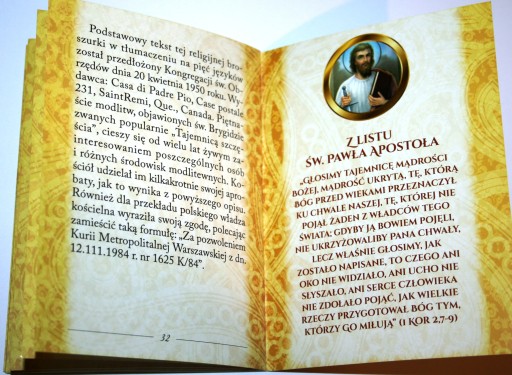 Podstawowy tekst tej religijnej bro-
szurki w tłumaczeniu na pięć języków
został przedłożony Kongregacji św. Ob-
rzędów dnia 20 kwietnia 1950 roku. Wy-
dawca: Casa di Padre Pio, Case postale
231, SaintRemi, Que., Canada. Piętna-
ście modlitw, objawionych św. Brygidzie
zwanych popularnie „Tajemnicą szczę-
ścia”, cieszy się od wielu lat żywym za-
interesowaniem poszczególnych osób
i różnych środowisk modlitewnych. Ko-
ściół udzielał im kilkakrotnie swojej apro-
baty, jak to wynika z powyższego opisu.
Również dla przekładu polskiego władza
kościelna wyraziła swoją zgodę, polecając
zamieścić taką formułę: „Za pozwoleniem
Kurii Metropolitalnej Warszawskiej z dn.
12.111.1984 r. nr 1625 K/84”.
32
Z LISTU
ŚW. PAWŁA APOSTOŁA
„GŁOSIMY TAJEMNICĘ MĄDROŚCI
BOŻEJ, MĄDROŚĆ UKRYTĄ, TĘ, KTÓRĄ
BÓG PRZED WIEKAMI PRZEZNACZYŁ
KU CHWALE NASZEJ, TĘ, KTÓREJ NIE
POJĄŁ ŻADEN Z WŁADCÓW TEGO
ŚWIATA; GDYBY JĄ BOWIEM POJĘLI,
NIE UKRZYŻOWALIBY PANA CHWAŁY,
LECZ WŁAŚNIE GŁOSIMY, JAK
ZOSTAŁO NAPISANE, TO CZEGO ANI
OKO NIE WIDZIAŁO, ANI UCHO NIE
SŁYSZAŁO, ANI SERCE CZŁOWIEKA
NIE ZDOŁAŁO POJĄĆ, JAK WIELKIE
RZECZY PRZYGOTOWAŁ BÓG TYM,
KTÓRZY GO MIŁUJĄ” (1 KOR 2,7-9)